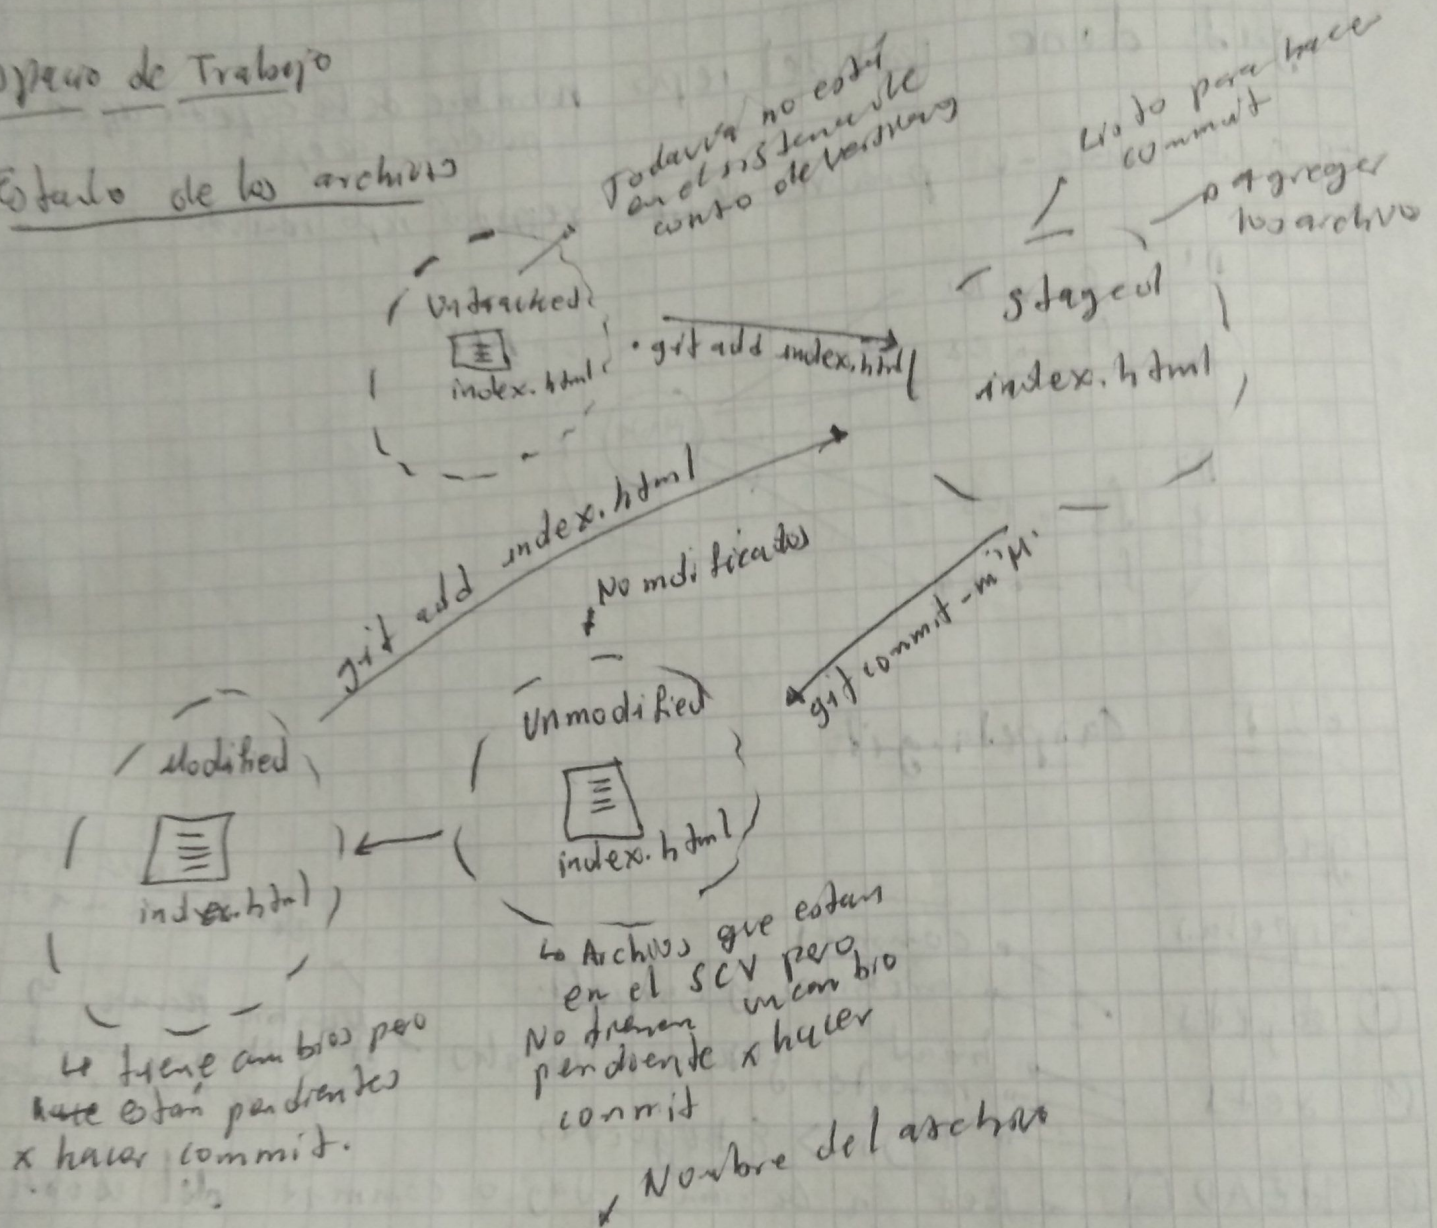 de Trabajo
Estado de los archivos
Todavía no está
en el sistema de
contro de versiones
Listo para hacer
commit
Agregar
los archivo
Untracked
index.html
git add index.html
Staged
index.html
git add index.html
No mdificados
git commit -m "M"
Modified
index.html
Unmodified
index.html
Archivos que estan
en el SCV pero
No tienen un cambio
pendiente x hacer
commit
tiene cambios pero
están pendientes
x hacer commit.
Nombre del archivo